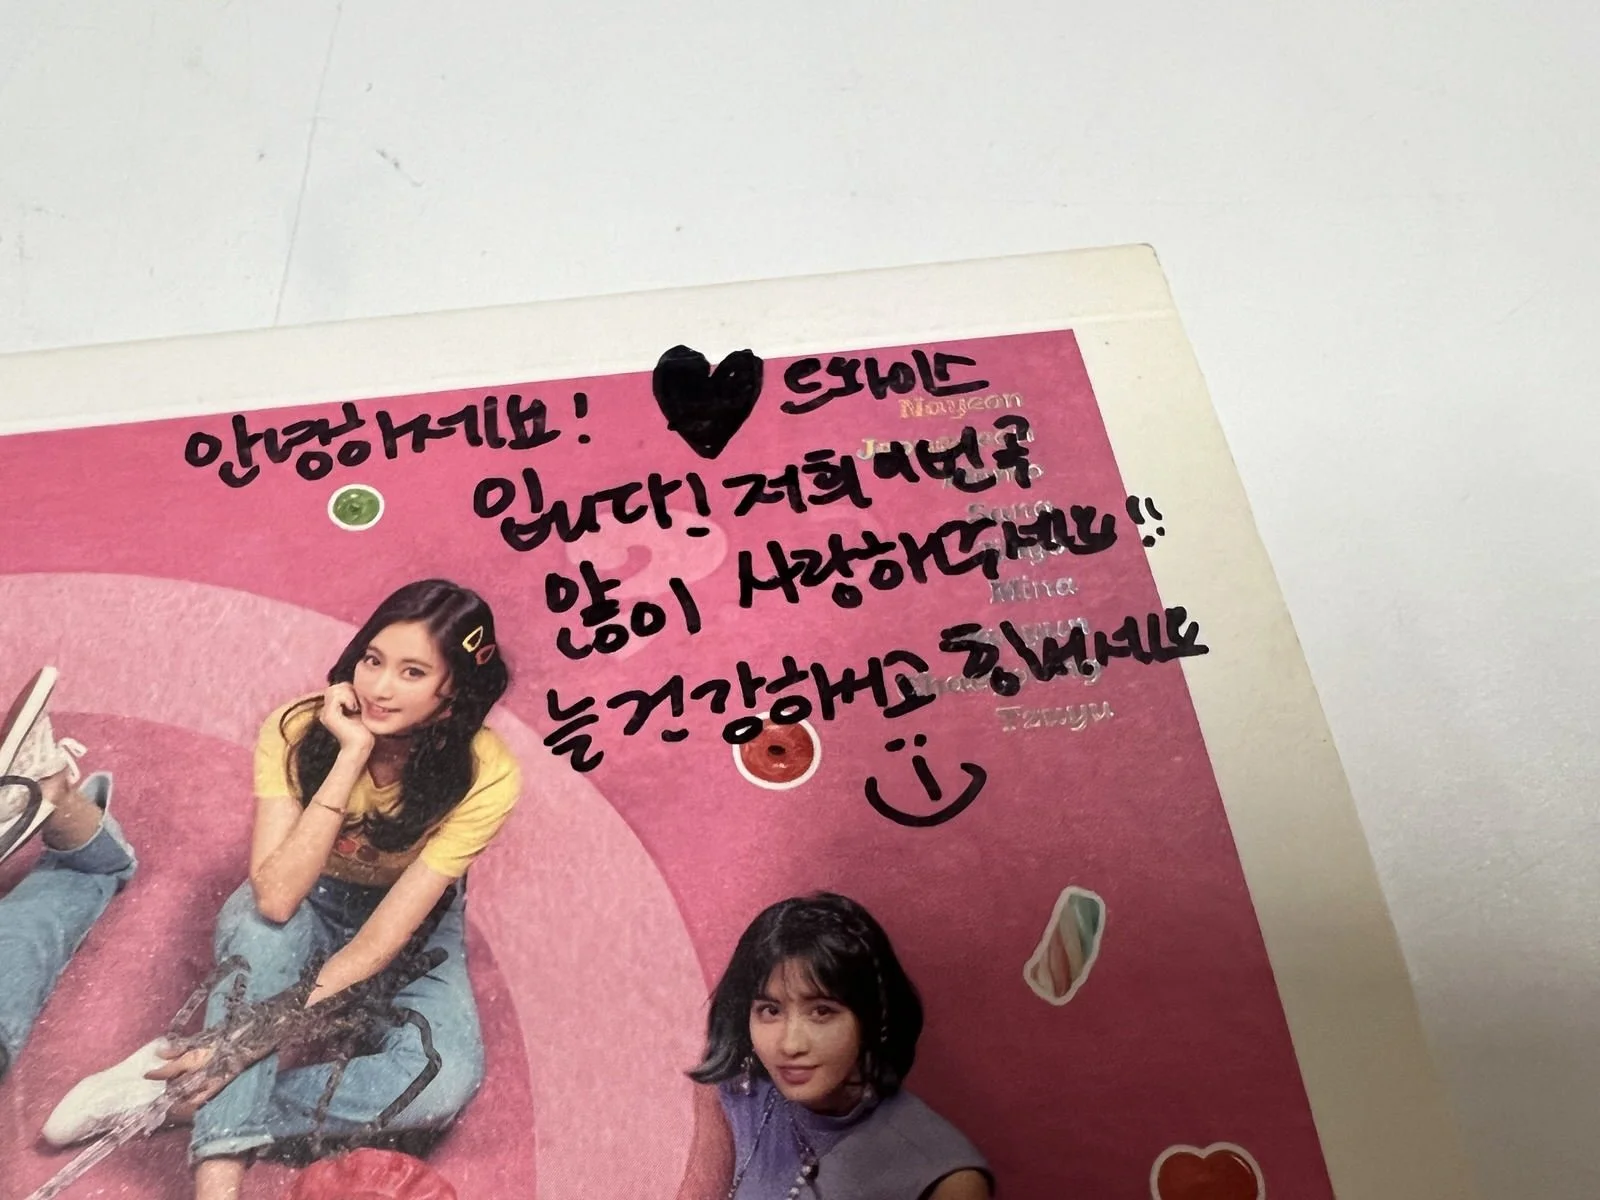 안녕하세요! ♥ 트와이스
입니다! 저희 이번 곡
많이 사랑해주세요!!
늘 건강하시고 힘내세요
Nayeon
Sana
Mina
Tzuyu